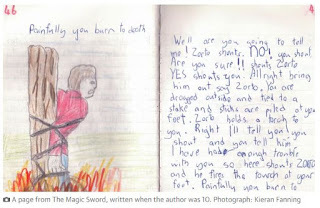 46
Painfully you burn to death
4
Well are you going to tell
me! Zorto shouts. NO! you shout
Are you sure!! shouts Zorto
YES shouts you. All right bring
him out say Zorto. You are
dragged outside and tied to a
stake and sticks are piled at your
feet. Zorto holds a torch to
you. Right I'll tell you you
shout and you tell him
I have had enough trouble
with you so here shouts ZORTO
and he fires the touch at your
feet. Painfully you burn to
A page from The Magic Sword, written when the author was 10. Photograph: Kieran Fanning